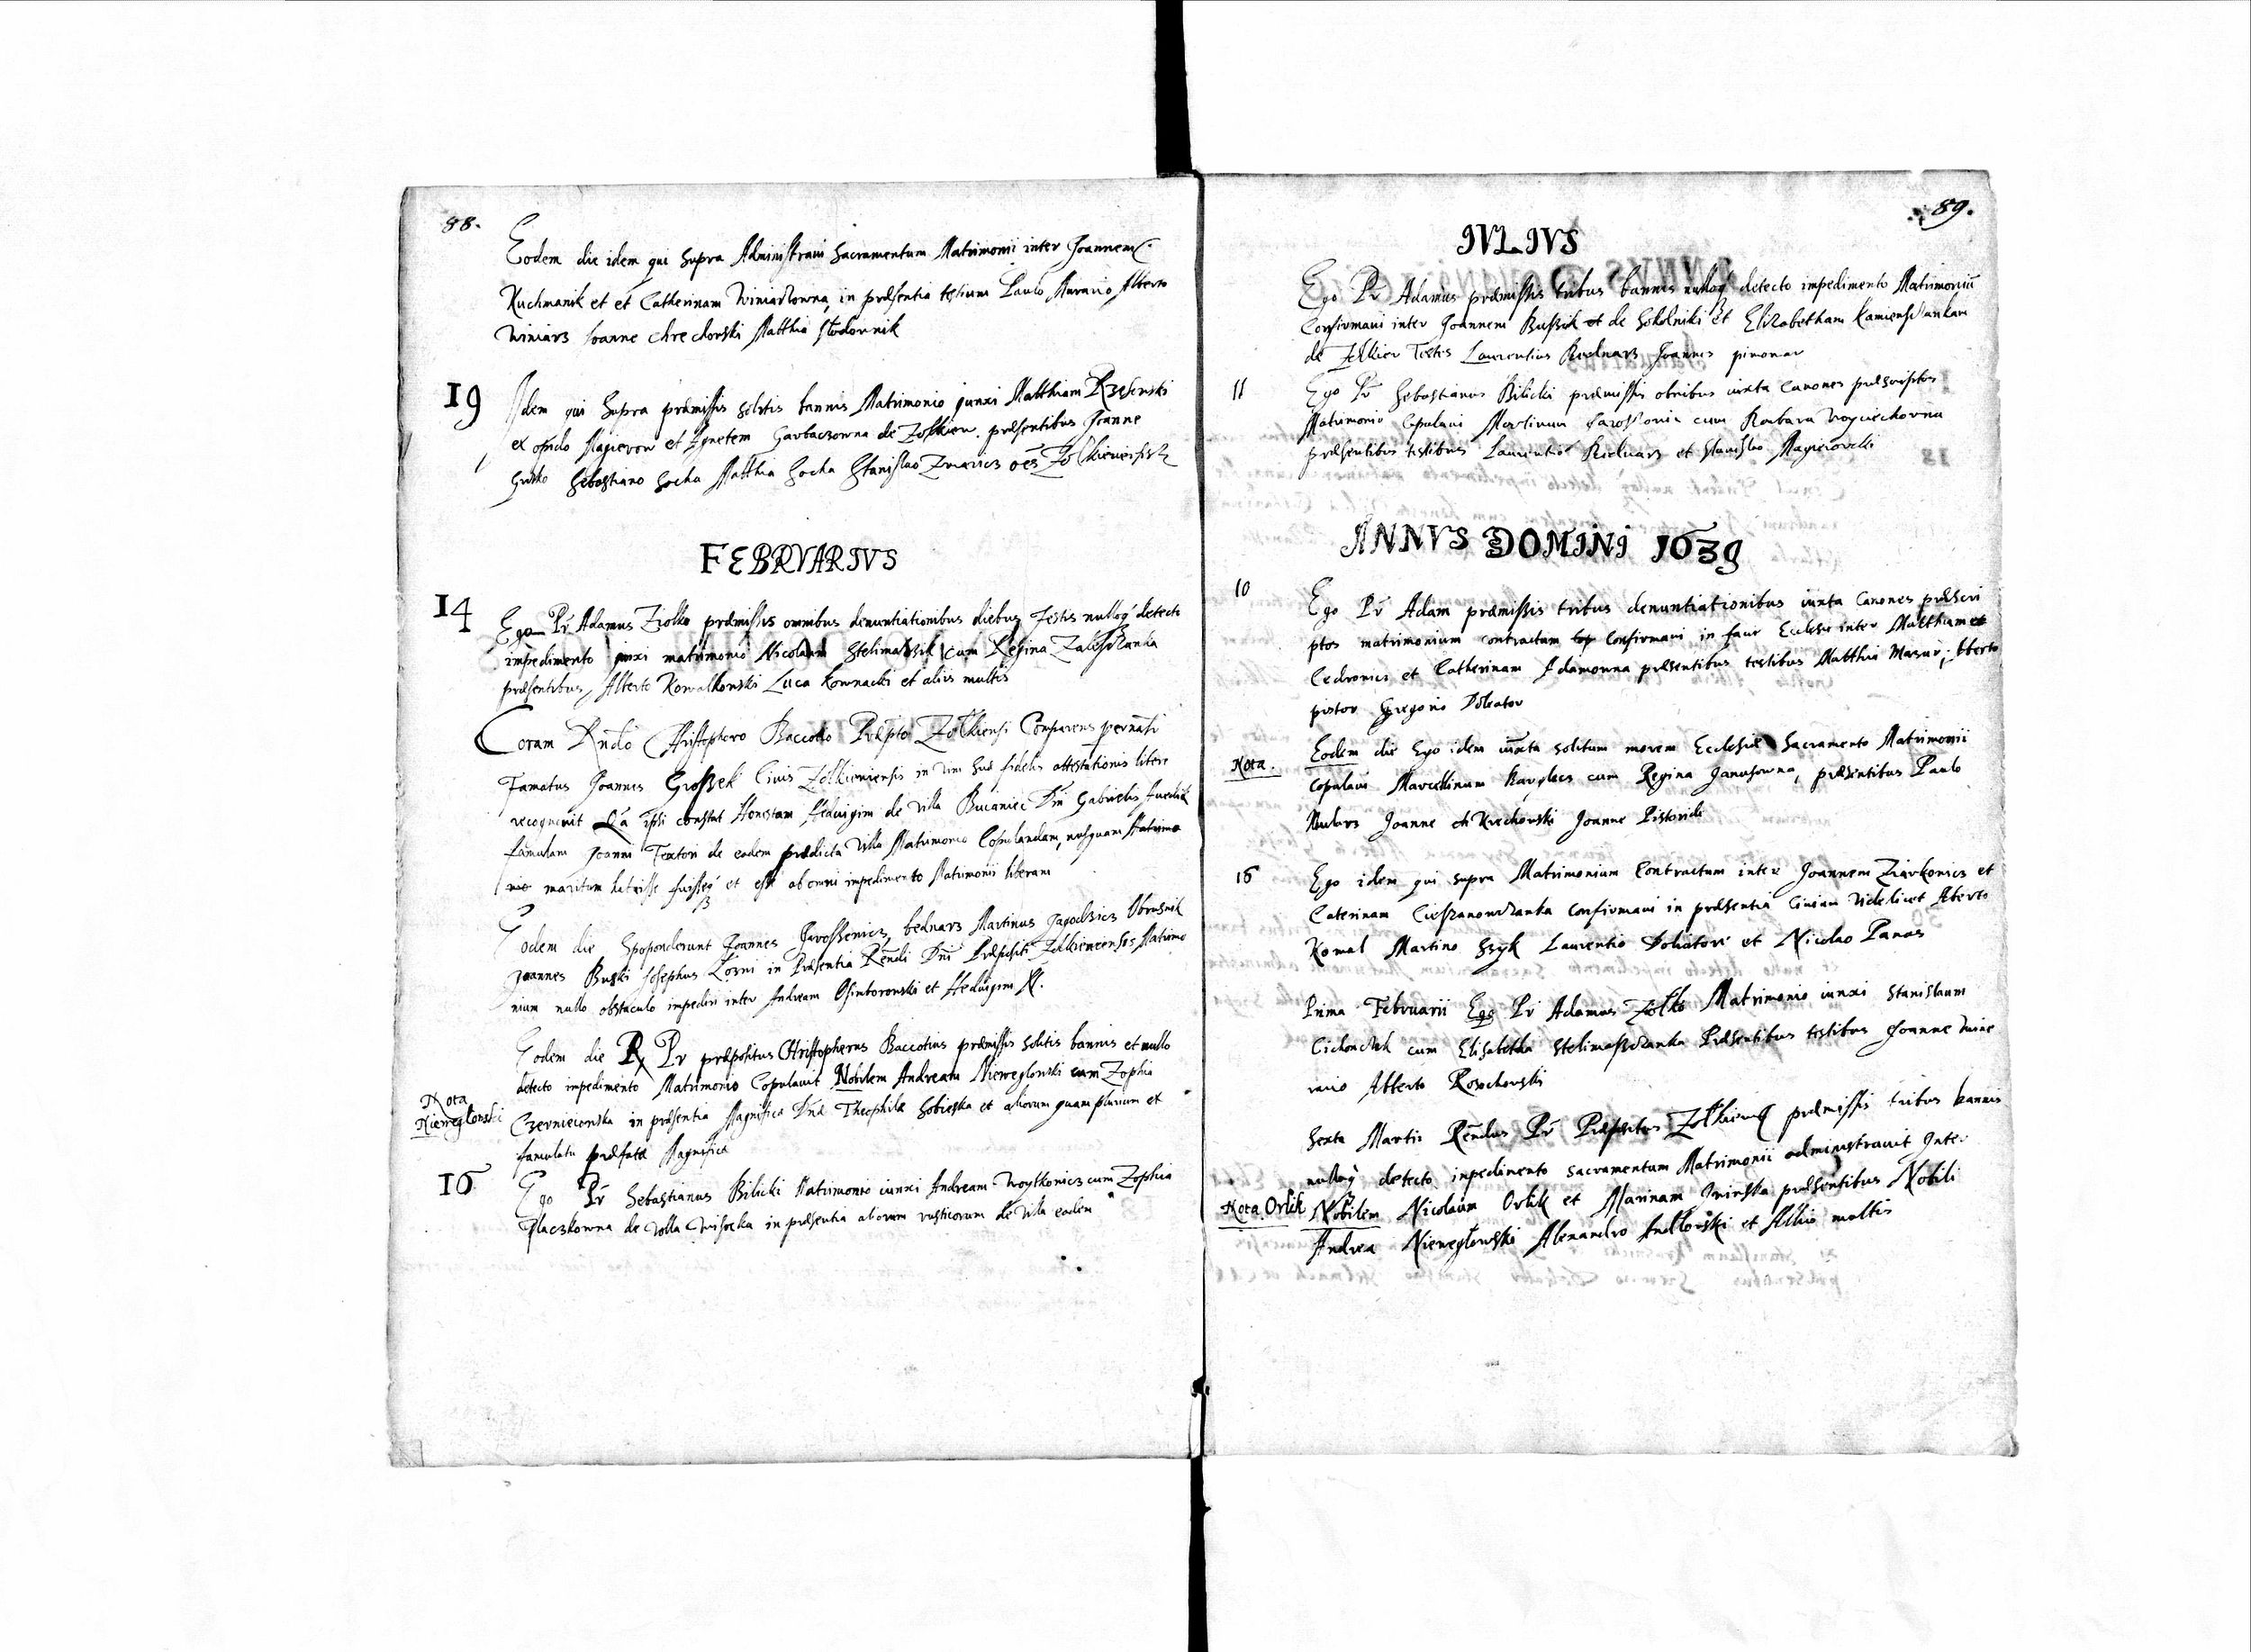 88.
Eodem die idem qui supra Administravi Sacramentum Matrimonii inter Joannem
Kuchmanik et et Catherinam Winiarzowna, in præsentia testium Paulo Murario Alberto
Winiarz Joanne Chrechorski Matthia Slodownik
19 Idem qui supra præmissis solitis bannis Matrimonio junxi Matthiam
ex opido Magierow et Agnetem Garbaczowna de Zolkiew. præsentibus Joanne
Sebastiano Socha Matthia Socha Stanislao
FEBRVARIVS
14 Ego Pr Adamus Ziolko præmissis omnibus denuntiationibus diebus Festis nulloq detecto
impedimento junxi matrimonio Nicolaum Stelmaszik cum Regina
præsentibus, Alberto Kowalkowski Luca Kownacki et aliis multis
Coram Rndo Christophoro Baccotio Præpto Zolkiensi Comparens
Famatus Joannes Grossek Civis Zolkieviensis in vim suæ fidelis attestationis libere
recognovit Qa ipsi constat Honestam Hedvigim de villa Bucaniec Dni Gabrielis
famulam Joanni Textori de eadem prædicta villa Matrimonio Copulandam, nusquam Matrimo
nio maritum habuisse fuisseq et esse ab omni impedimento Matrimonii liberam
Eodem die Spoponderunt Joannes bednarz Martinus
Joannes Buski Josephus in Præsentia Rendi Dni Præpositi Zolkieviensis Matrimo
nium nullo obstaculo impediri inter Andream et Hedvigim N.
Eodem die R Pr præpositus Christopherus Baccotius præmissis solitis bannis et nullo
detecto impedimento Matrimonio Copulavit Nobilem Andream Nieweglowski cum Zophia
Nota
Nieweglowski
Czerniecouska in præsentia Magnificæ Dnæ Theophilæ Sobieska et aliorum quam plurium et
famulatu præfatæ Magnificæ
16 Ego Pr Sebastianus Bilicki Matrimonio iunxi Andream Woytkonicz cum Zophia
de Volla Wisocka in præsentia aliorum rusticorum de villa eadem
89.
IVLIVS
Ego Pr Adamus præmissis tribus bannis nulloq detecto impedimento Matrimonium
Confirmavi inter Joannem Bussik et de Sokolniki et Elizabetham
de Zolkiew Testes Laurentius Bednarz Joannes pivovar
11 Ego Pr Sebastianus Bilicki præmissis iuxta Canones præscriptos
Matrimonio Copulavi Martinum cum Barbara Woyciechowna
præsentibus testibus Laurentio Bednarz et Stanislao
ANNVS DOMINI 1639
10 Ego Pr Adam præmissis tribus denuntiationibus iuxta Canones præscri
ptos matrimonium contractum Confirmavi in facie Ecclesiæ inter Matthiam
Cedronicz et Catherinam Adamowna præsentibus testibus Matthia Mazur, Alberto
pistor Gregorio Doleator
Nota. Eodem die Ego idem iuxta solitum morem Ecclesiæ Sacramento Matrimonii
Copulavi Marcellinum cum Regina Janusowna, præsentibus Paulo
Mularz Joanne Joanne
16 Ego idem qui supra Matrimonium Contractum inter Joannem Ziarkonicz et
Caterinam Confirmavi in præsentia Civium Videlicet Alberto
Kowal Martino Szyk Laurentio Doliatori et Nicolao Panas
Prima Februarii Ego Pr Adamus Zolko Matrimonio iunxi Stanislaum
cum Elisabetha Præsentibus testibus Joanne
Alberto Rosochowski
Sexta Martis Rendus Pr Præpositus præmissis tribus bannis
nulloq detecto inpedimento Sacramentum Matrimonii administravit Inter
Nota. Orlik Nobilem Nicolaum Orlik et Marinam præsentibus Nobili
Andrea Nieweglowski Alexandro et Aliis multis